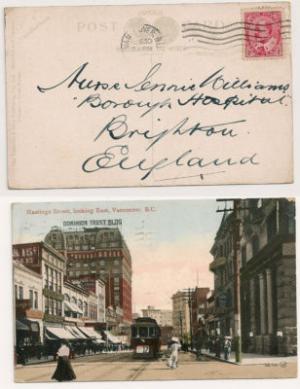 POST CARD
Nurse Jennie Williams
Borough Hospital
Brighton
England
Hastings Street, looking East, Vancouver, B.C.
DOMINION TRUST BLDG